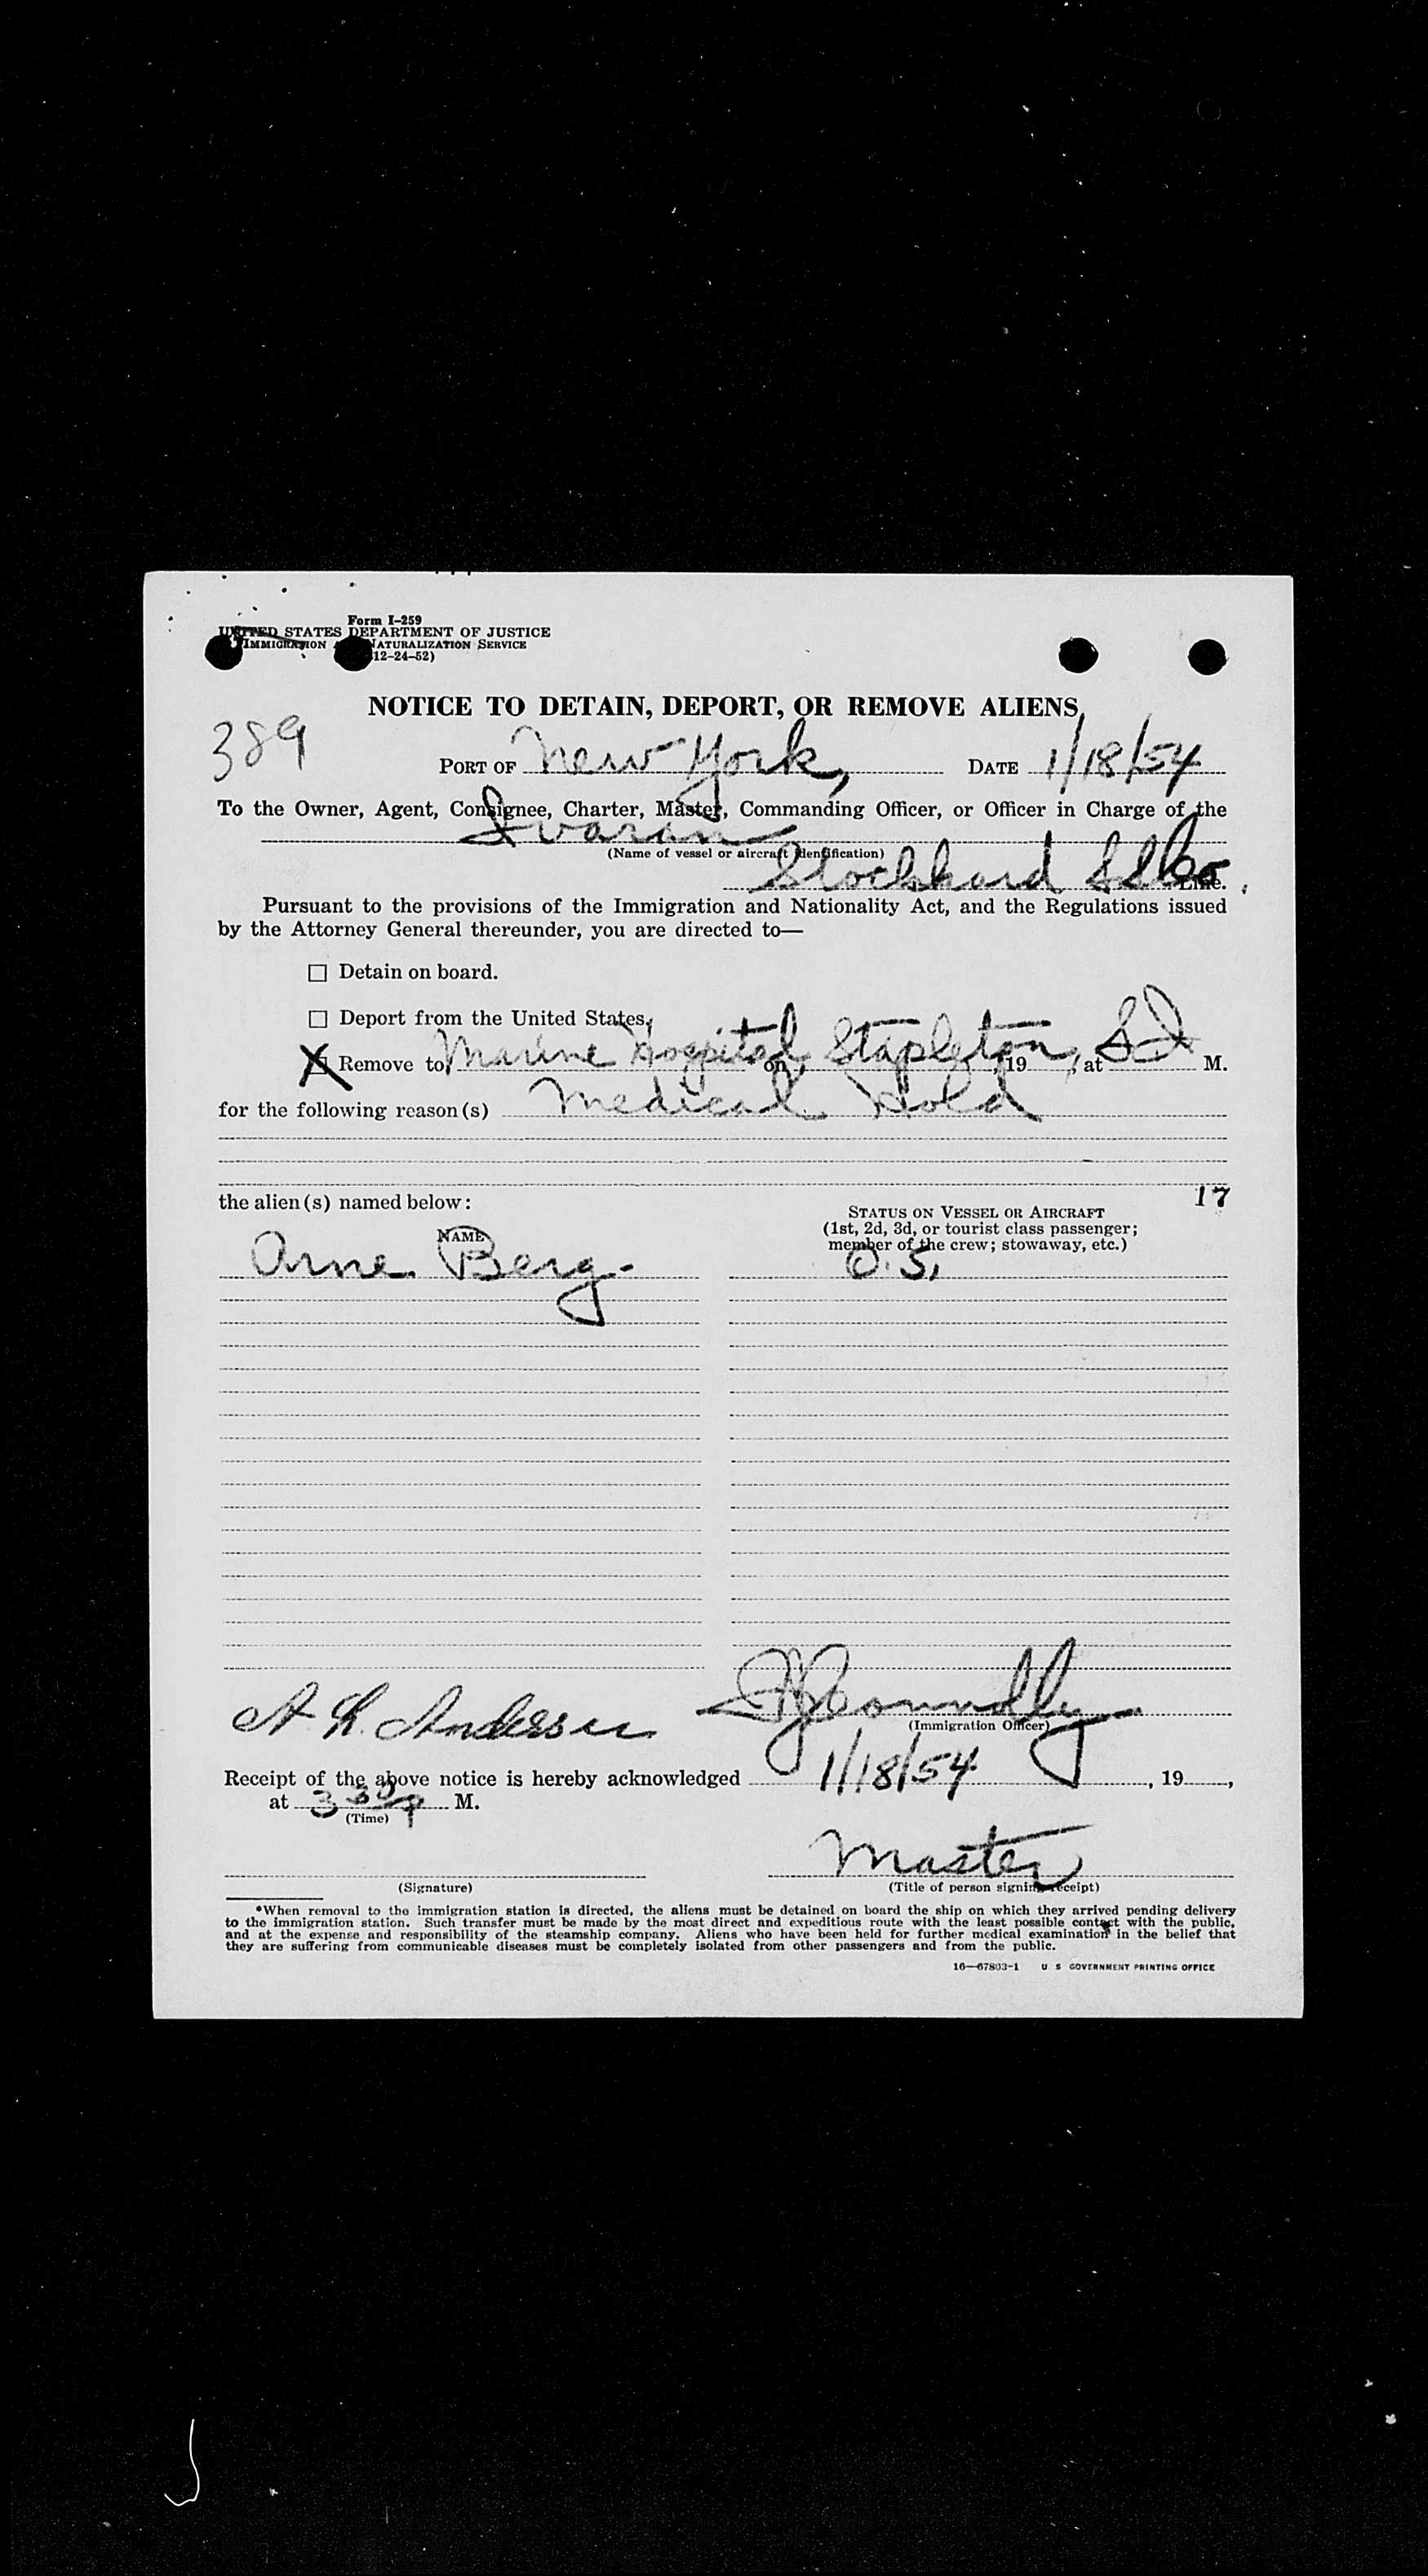 Form I-259
UNITED STATES DEPARTMENT OF JUSTICE
IMMIGRATION NATURALIZATION SERVICE
12-24-52)
NOTICE TO DETAIN, DEPORT, OR REMOVE ALIENS
389
PORT OF New York, DATE 1/18/54
To the Owner, Agent, Consignee, Charter, Master, Commanding Officer, or Officer in Charge of the
Ivaran
(Name of vessel or aircraft identification)
Stockhard SS Co. Line.
Pursuant to the provisions of the Immigration and Nationality Act, and the Regulations issued
by the Attorney General thereunder, you are directed to—
☐ Detain on board.
☐ Deport from the United States.
☒ Remove to Marine Hospital on Stapleton, 19 , at SI M.
for the following reason(s) Medical Hold
17
the alien(s) named below:
STATUS ON VESSEL OR AIRCRAFT
(1st, 2d, 3d, or tourist class passenger;
member of the crew; stowaway, etc.)
NAME
Arne Berg. O.S.
Connolly
A. Andersen
(Immigration Officer)
Receipt of the above notice is hereby acknowledged 1/18/54, 19 ,
at 3 30 P M.
(Time)
Master
(Signature) (Title of person signing receipt)
*When removal to the immigration station is directed, the aliens must be detained on board the ship on which they arrived pending delivery
to the immigration station. Such transfer must be made by the most direct and expeditious route with the least possible contact with the public,
and at the expense and responsibility of the steamship company. Aliens who have been held for further medical examination in the belief that
they are suffering from communicable diseases must be completely isolated from other passengers and from the public.
16—67803-1 U S GOVERNMENT PRINTING OFFICE